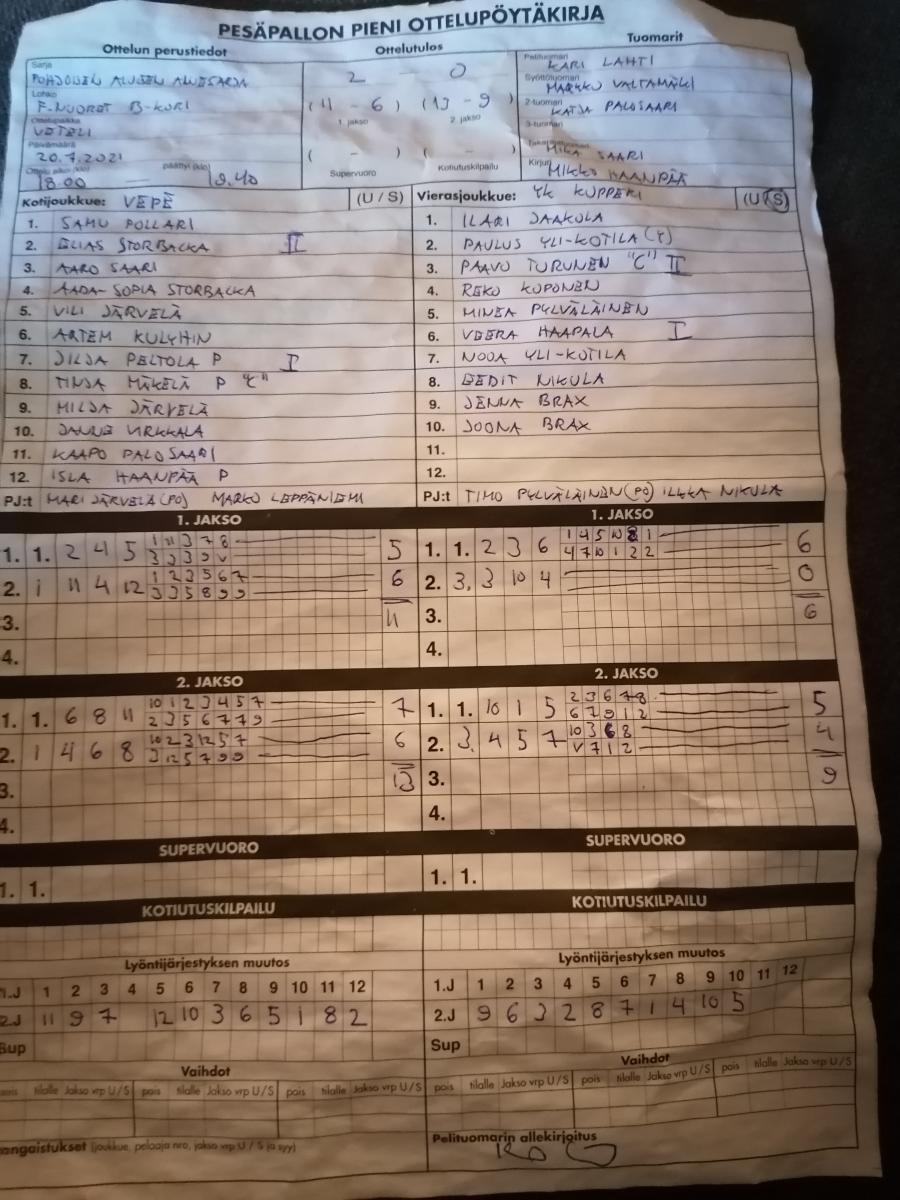 PESÄPALLON PIENI OTTELUPÖYTÄKIRJA
Ottelun perustiedot
Sarja
POHJOISEN ALUEEN ALUESARJA
Lohko
F-NUORET B-KORI
Ottelupaikka
VETELI
Päivämäärä
20.7.2021
Ottelu alkoi (klo) päättyi (klo)
18.00 19.40
Ottelutulos
2 - 0
(11 - 6) (13 - 9)
1. jakso 2. jakso
( - ) ( - )
Supervuoro Kotiutuskilpailu
Tuomarit
Pelituomari
KARI LAHTI
Syöttötuomari
MARKKU VALTAMÄKI
2-tuomari
KATJA PALOSAARI
3-tuomari
Takarajatuomari
MIKA SAARI
Kirjuri
MIKKO HAANPÄÄ
Kotijoukkue: VEPE (U / S)
1. SAMU POLLARI
2. ELIAS STORBACKA II
3. AARO SAARI
4. AADA-SOFIA STORBACKA
5. VILI JÄRVELÄ
6. ARTEM KULYHIN
7. JILJA PELTOLA P I
8. TINJA MÄKELÄ P "C"
9. MILJA JÄRVELÄ
10. JANNE VIRKKALA
11. KAAPO PALOSAARI
12. ISLA HAANPÄÄ P
PJ:t MARI JÄRVELÄ (PO) MARKO LEPPÄNIEMI
Vierasjoukkue: YK KUPPERI (U / S)
1. ILARI JAAKOLA
2. PAULUS YLI-KOTILA (T)
3. PAAVO TURUNEN "C" II
4. REKO KOPONEN
5. MINEA PYLVÄLÄINEN
6. VEERA HAAPALA I
7. NOOA YLI-KOTILA
8. BEDIT NIKULA
9. JENNA BRAX
10. JOONA BRAX
11.
12.
PJ:t TIMO PYLVÄLÄINEN (PO) ILKKA NIKULA
1. JAKSO
1. 1. 2 4 5 1 11 3 7 8 5
3 3 3 9 V
2. 1 11 4 12 1 2 3 5 6 7 6
3 3 5 8 9 9
3. 11
4.
1. JAKSO
1. 1. 2 3 6 1 4 5 10 8 1 6
4 7 10 1 2 2
2. 3. 3 10 4 0
3. 6
4.
2. JAKSO
1. 1. 6 8 11 10 1 2 3 4 5 7 7
2 3 5 6 7 7 9
2. 1 4 6 8 10 2 3 12 5 7 6
3 12 5 7 9 9
3. 13
4.
2. JAKSO
1. 1. 10 1 5 2 3 6 7 8 5
6 7 9 1 2
2. 3. 4 5 7 10 3 6 8 4
V 7 1 2
3. 9
4.
SUPERVUORO
1. 1.
SUPERVUORO
1. 1.
KOTIUTUSKILPAILU
KOTIUTUSKILPAILU
Lyöntijärjestyksen muutos
1.J 1 2 3 4 5 6 7 8 9 10 11 12
2.J 11 9 7 12 10 3 6 5 1 8 2
Sup
Lyöntijärjestyksen muutos
1.J 1 2 3 4 5 6 7 8 9 10 11 12
2.J 9 6 3 2 8 7 1 4 10 5
Sup
Vaihdot
pois tilalle Jakso vrp U / S pois tilalle Jakso vrp U / S pois tilalle Jakso vrp U / S
Vaihdot
pois tilalle Jakso vrp U / S pois tilalle Jakso vrp U / S pois tilalle Jakso vrp U / S
angaistukset (joukkue, pelaaja nro, jakso vrp U / S ja syy)
Pelituomarin allekirjoitus